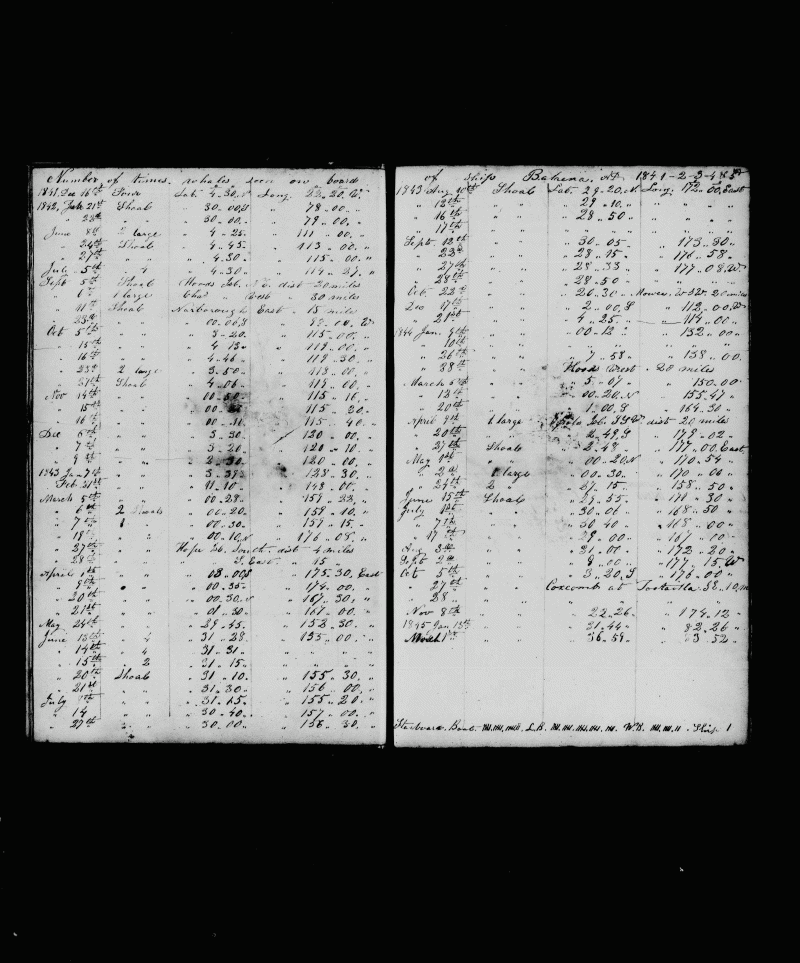 Number of times whales seen on board
1841 Dec 16th Lat. 4..30.N Long. 22..20.W.
1842, 21st Shoal 30..00.S " 78..00 "
" 23d " " 30..00 " " 79..00 "
June 8th 2 large " 4..25 " 111..00 "
" 24th Shoal " 4..45 " 113..00 "
" 27th " " 4..30 " " 115..00 "
July 5th " 4 " 4..30 " " 114..27 "
Sept 5th Shoal Hoods Isl. N.E. dist 20 miles
" 6th 1 large Chas West " 30 miles
" 11th Shoal Narborough East " 15 miles
" 23d " " 00..00.S " W.
Oct 5th " " 3..20 " 115..00 "
" 15th " " 4..13 " 119..00 "
" 16th " " 4..46 " " 119..30 "
" 23d 2 large " 3..50 " " 113..00 "
" 31st Shoal " 4..06 " " 113..00 "
Nov 14th " " 00..50 " " 115..16 "
" 15th " " 00.. " 115..20 "
" 16th " " 00..11 " 115..40 "
Dec 6th " " 3..30 " 120..00 "
" 7th " " 3..20 " 120..10 "
" 9th " " 2..30 " 120..00 "
1843 Jan 7th " " 3..37 " 128..30 "
Feb 21st " " 11..10 " " 148..00 "
March 5th " " 00..28 " " 157..23 "
" 6th 2 Shoals " 00..20 " " 158..10 "
" 7th " 00..30 " " 157..15 "
" 18th " " 00..10.N " 176..08 "
" 27th " " Hope Isl. South dist 4 miles
" 28th " " S. East " 15 "
April 1st " " 03..00.S " 175..30. East
" 5th " " 00..35 " 174..00 "
" 20th " " 00..30.N " 167..30 "
" 21st " " 01..30 " " 167..00 "
May 24th " " 29..45 " " 152..30 "
June 13th " 4 " 31..28 " 155..00 "
" 14th " 4 " 31..31 " " " "
" 15th 2 " 31..15 " " " "
" 20th Shoal " 31..10 " " 155..30 "
" 21st " " 31..30 " " 156..00 "
July 1st " " 31..15 " " 155..20 "
" 14 " " 30..40 " " 157..00 "
" 27th " " 30..00 " " 156..30 "
of ship Balaena 1841-2-3-4 & 5
1843 Aug 10th Shoal Lat. 29..20.N Long. 172..00. East
" 12th " " 29..10 " " " "
" 16th " " 28..50 " " " "
" 17th " " " " " "
Sept 12th " " 30..05 " 173..30 "
" 23d " " 28..15 " 176..58 "
" 27th " " 28..33 " 177..08.W.
" 28th " " 28..50 " " "
Oct 22d " " 20..30 " Mowee W.S.W. 20 miles
Dec 17th " " 2..00.S " 112..00.W
" 21st " " 4..25 " 114..00 "
1844 Jan. 9th " " 00..12 " 132..00 "
" 10th " " " " " "
" 26th " " 7..58 " 138..00
" 28th " " Hoods West 20 miles
March 5th " " 5..07 " 150.00
" 13th " " 00..20.N " 155.47 "
" 20th " " 1..00.S " 164..30 "
April 9th 1 large Isl. dist 20 miles
" 20th " " 2..49.S " 179..02 "
" 27th Shoals " 2..48 " 177..00. East.
May 1st " " 00..20.N " 170..54 "
" 2d 1 large " 00..30 " 170..00 "
" 29th 2 " 27..15 " 158..50 "
June 15th Shoal " 29..55 " 171..30 "
July 1st " " 30..06 " 168..50 "
" 7th " " 30..40 " 168..00 "
" 17th " " 29..00 " 167..10 "
Aug 3d " " 21..01 " 172..20 "
Sept 2d " " 9..00 " 177..15.W
Oct 5th " " 3..20.S " 176..00 "
" 27th " " Coxcomb at S.E. 10.m
" 28 " " " "
Nov 8th " " 22..26 " 174..12 "
1845 Jan 13th " " 31..44 " 82..26 "
March 1st " " 36..59 " 53..52 "
Starboard Boat L.B. W.B. Ship 1